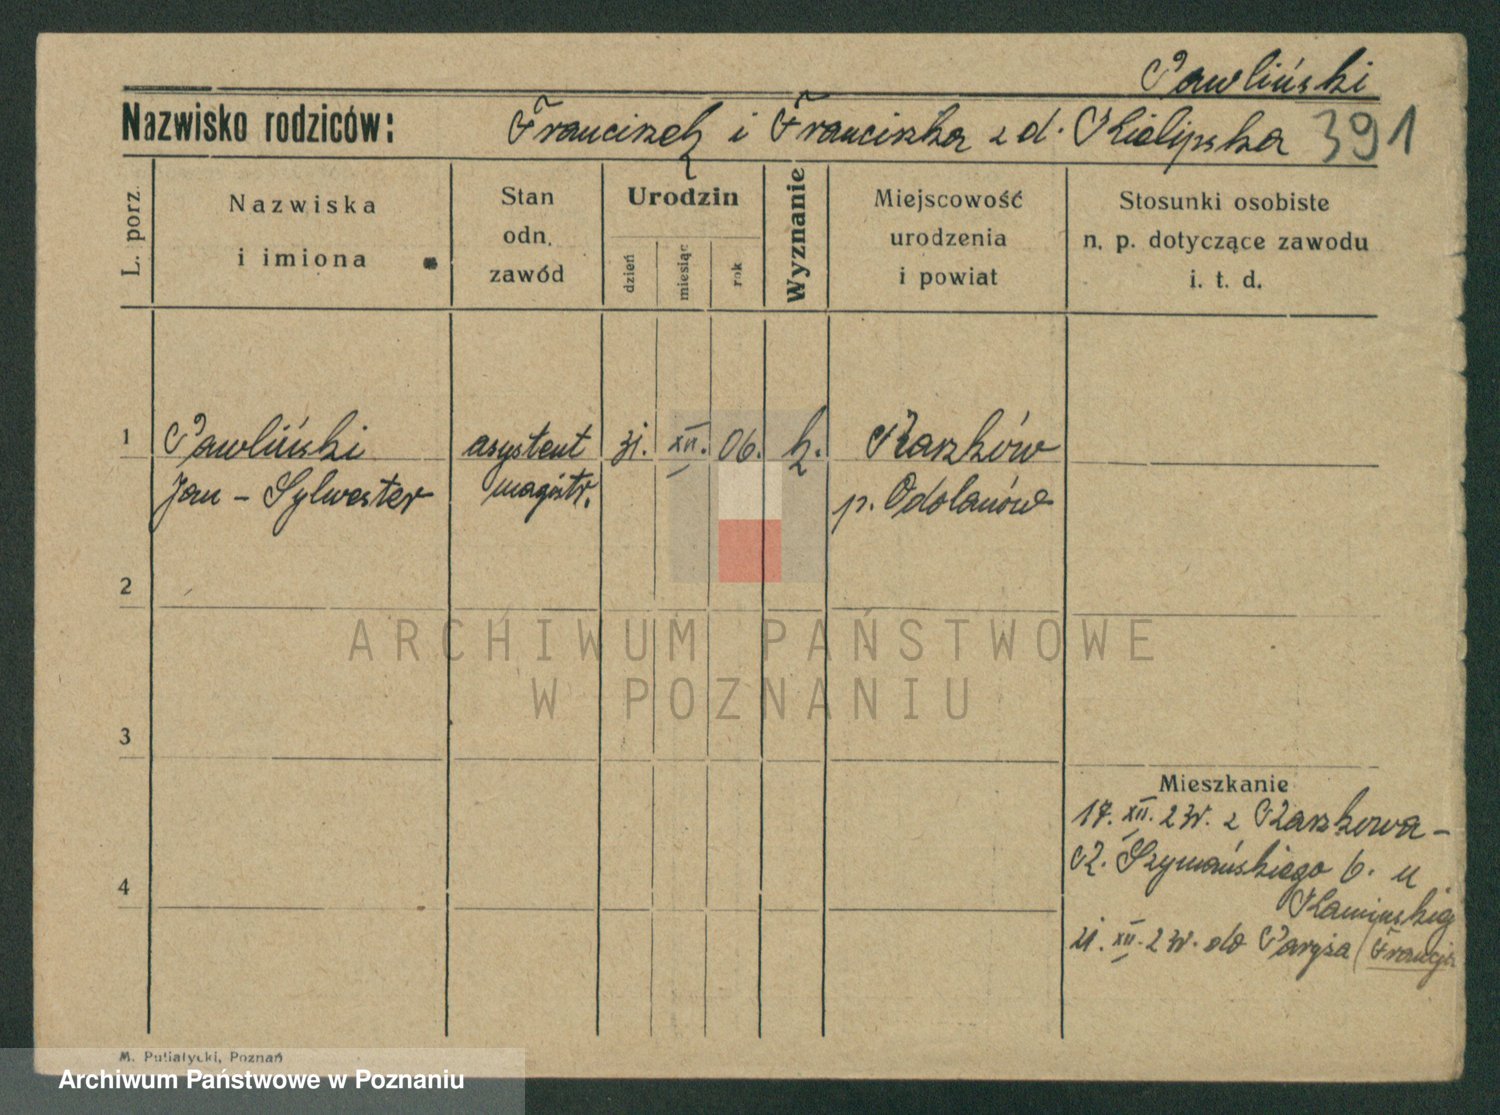 Pawliński
Nazwisko rodziców: Franciszek i Franciszka z d. Kielipska 391
L. porz.
Nazwiska
i imiona
Stan
odn.
zawód
Urodzin
dzień
miesiąc
rok
Wyznanie
Miejscowość
urodzenia
i powiat
Stosunki osobiste
n. p. dotyczące zawodu
i. t. d.
1 Pawliński asystent 31. XII. 06. k. Raszków
Jan - Sylwester magistr. p. Odolanów
2
ARCHIWUM PAŃSTWOWE
W POZNANIU
3
Mieszkanie
17. XII. 23r. z Raszkowa -
R. Szymańskiego 6. u
4
Kamińskieg
21. XII. 23r. do Paryża (Francja
M. Putiatycki, Poznań
Archiwum Państwowe w Poznaniu